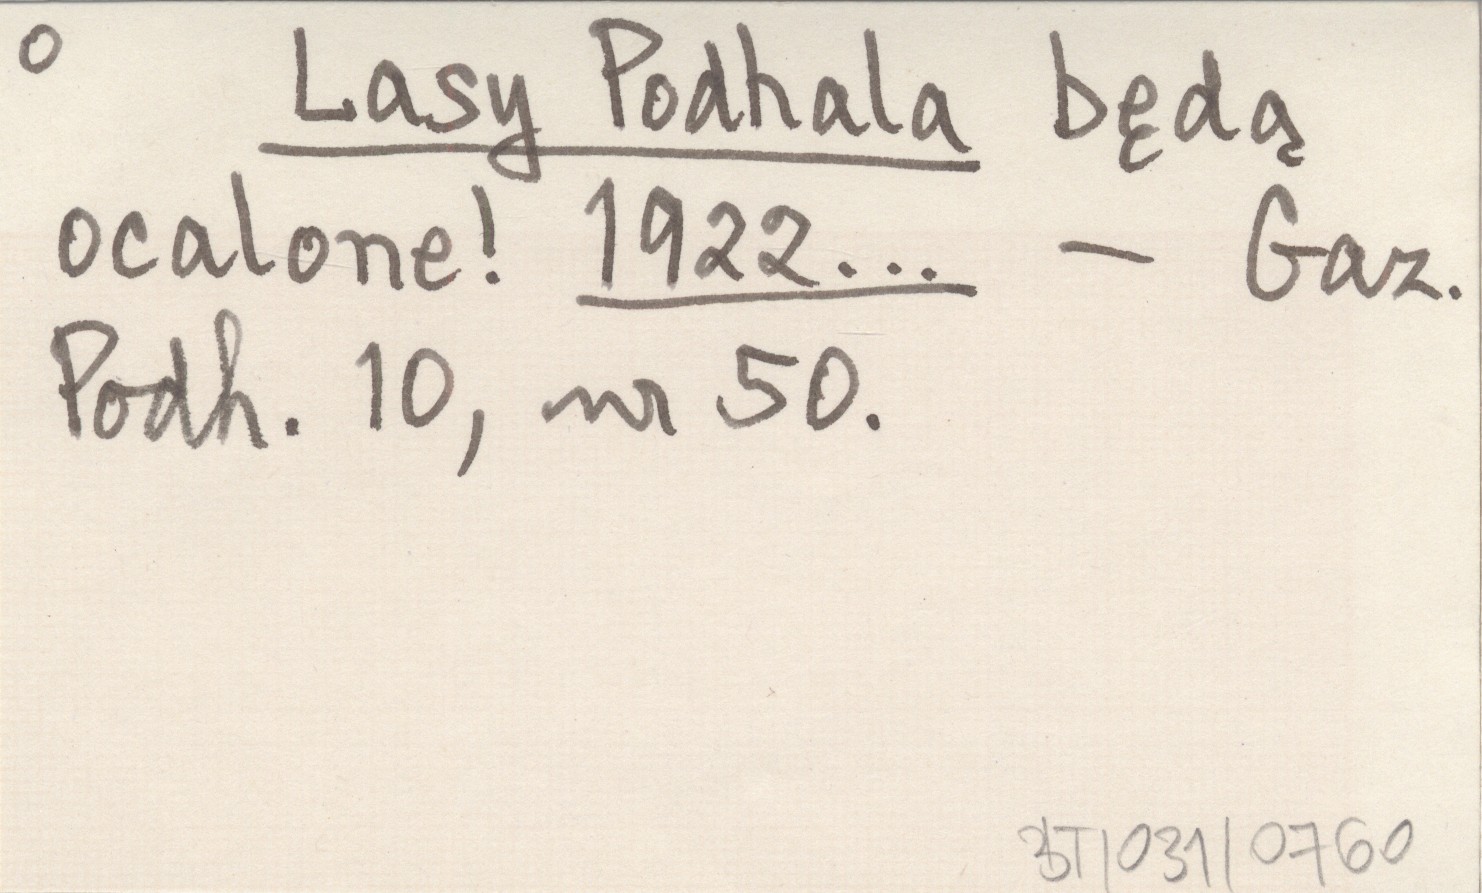 o Lasy Podhala będą
ocalone! 1922... — Gaz.
Podh. 10, nr 50.
BT/031/0760